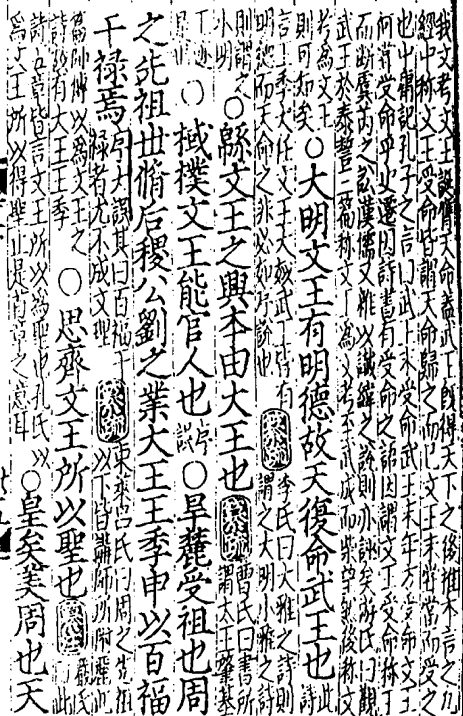 我文考文王誕膺天命蓋武王既得天下之後推本言之凡
經中稱文王受命皆謂天命歸之而已文王未嘗當而受之
也中庸記孔子之言曰武王末受命武王末年方受命文王
何嘗受命乎史遷因詩書有受命之語因謂文王受命稱王
而斷虞芮之訟漢儒又雜以讖緯之說則亦誣矣孫氏曰觀
武王於泰誓二篇稱文王爲文考至武成而柴望然後稱文
考爲文王則可知矣○大明文王有明德故天復命武王也此詩
言王季大任文王大姒武王皆有明德而天命之非必如序說也李氏曰大雅之詩則謂之大明小雅之詩
則謂之小明○緜文王之興本由大王也曹氏曰書所謂大王肇基
王迹是也○棫樸文王能官人也序誤○旱麓受祖也周
之先祖世脩后稷公劉之業大王王季申以百福
干祿焉序大誤其曰百福干祿者尤不成文理東萊呂氏曰周之先祖以下皆講師所附麗此
篇師傅以爲文王之詩故有大王王季○思齊文王所以聖也嚴氏曰此
詩五章皆言文王所以爲聖也孔氏以爲文王所以得聖止是首章之意耳○皇矣美周也天